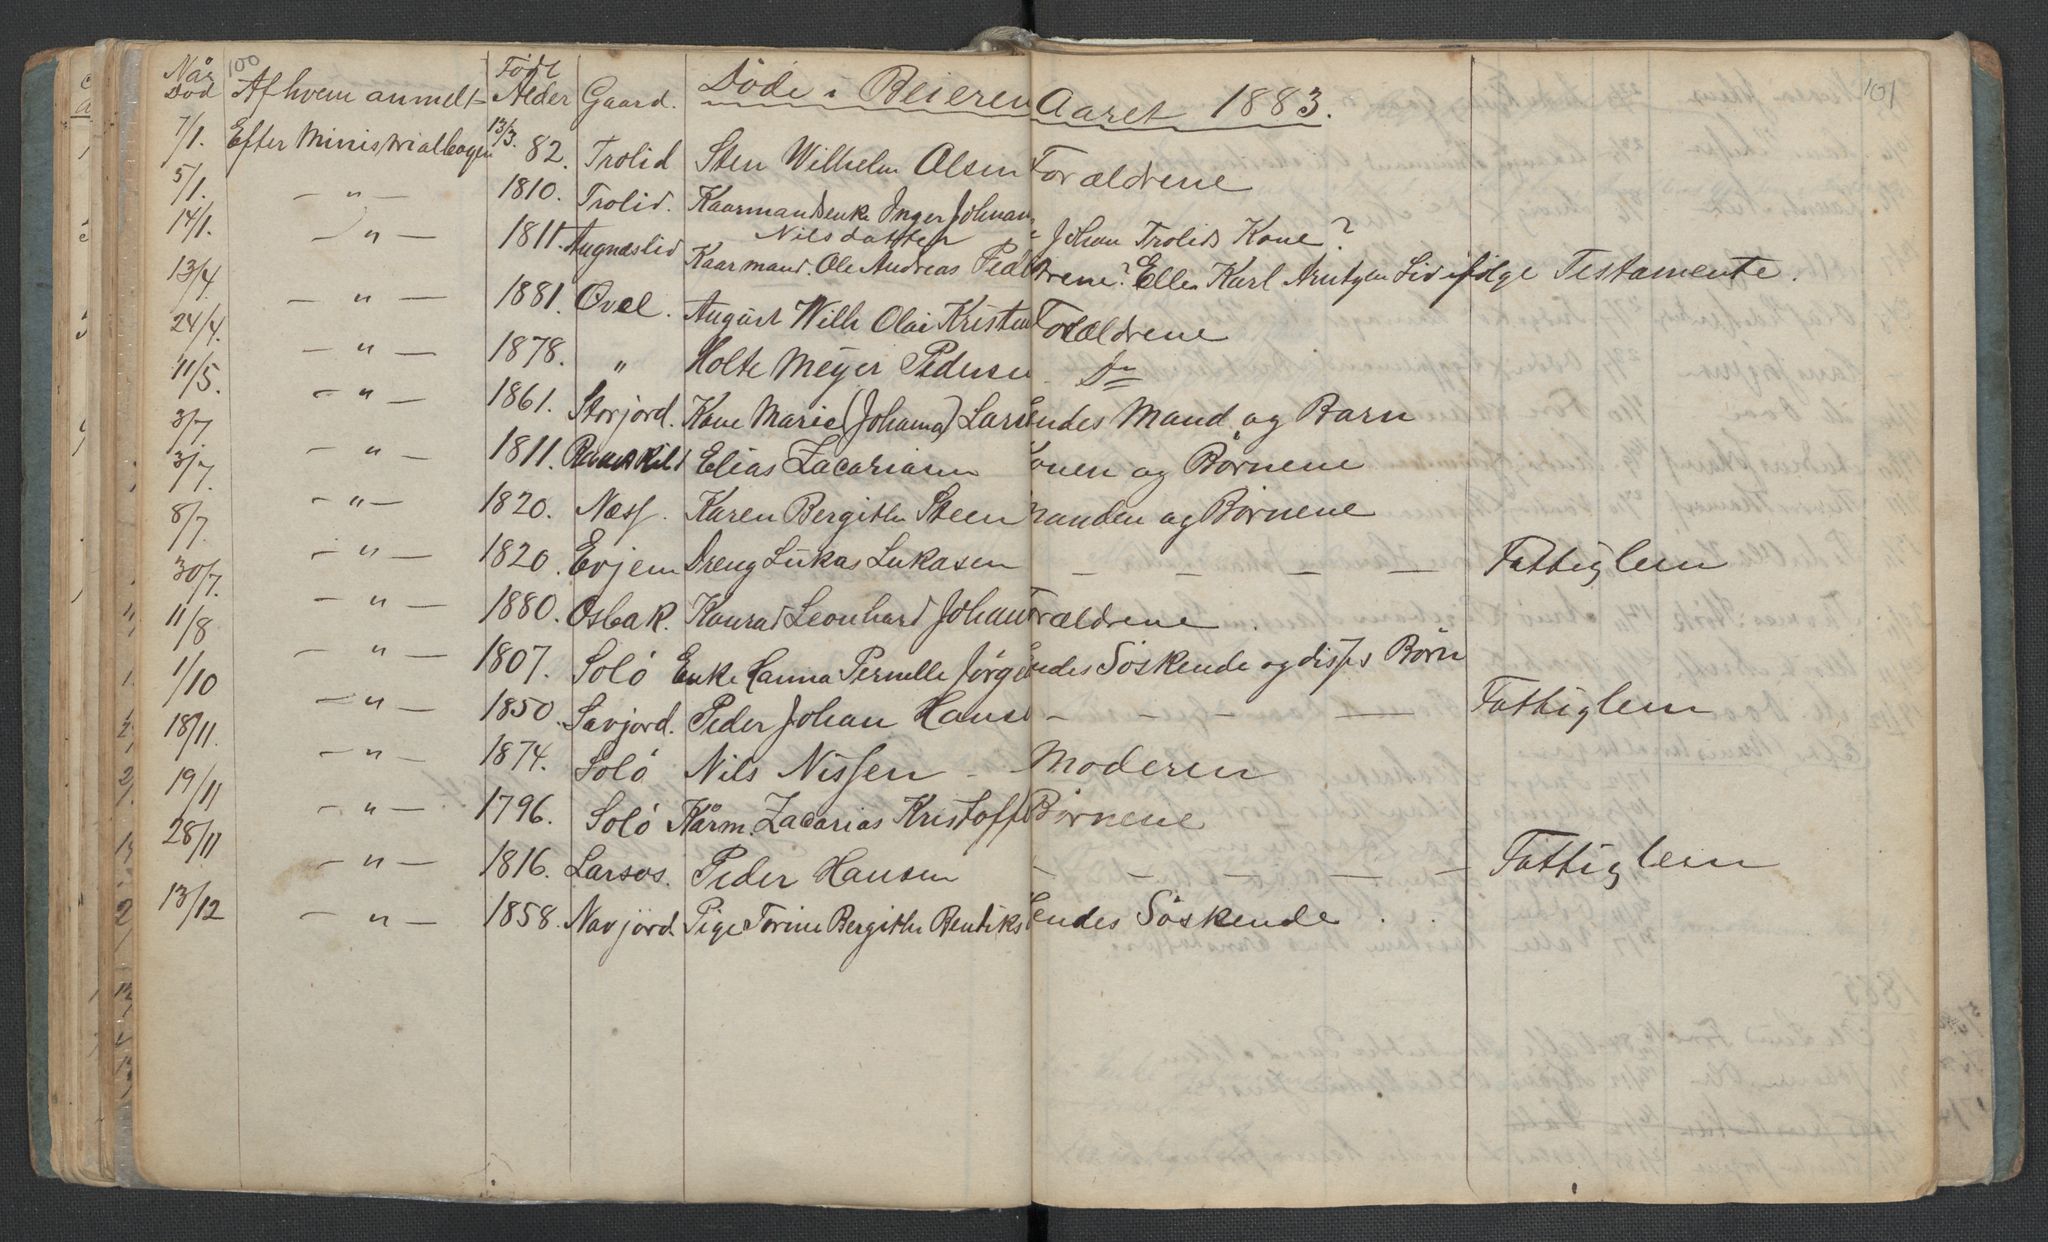 100
101
Når Død Af hvem anmelt Født Alder Gaard. Døde i Beieren Aaret 1883.
7/1. Efter Ministrialbogen 13/3. 82. Trolid Sten Wilhelm Olsen Forældrene
5/1. — " — 1810. Trolid. Kaarmandsenke Inger Johan
Nilsdatter Johan Trolids Kone?
14/1. — " — 1811. Augnæslid Kaarmand. Ole Andreas Ped drene? Elle Karl Arntzen Lid ifølge Testamente.
13/4. — " — 1881. Øvel. August Wilh Olai Kristen Forældrene
24/4. — " — 1878. " Holte Meyer Pedersen Do
11/5. — " — 1861. Storjord. Kone Marie (Johanna) Lars Hendes Mand og Barn
3/7 — " — 1811. Elias Zacariasen Konen og Børnene
3/7. — " — 1820. Næss. Karen Bergithe Steen Manden og Børnene
8/7. — " — 1820. Evjem Dreng Lukas Lukasen — — — — Fattiglem
30/7. — " — 1880. Osbak. Konrad Leonhard Johan Forældrene.
11/8 — " — 1807. Solö Enke Hanna Pernille Jørge Hendes Söskende og disses Börn
1/10 — " — 1850. Savjord. Peder Johan Hans — — — — Fattiglem
18/11. — " — 1874. Solö Nils Nissen — Moderen
19/11 — " — 1796. Solö Kårm. Zacarias Kristoff Børnene
28/11 — " — 1816. Larsos. Peder Hansen — — — — — Fattiglem
13/12 — " — 1858. Navjord. Pige Torine Bergithe Bendiks Hendes Söskende . .